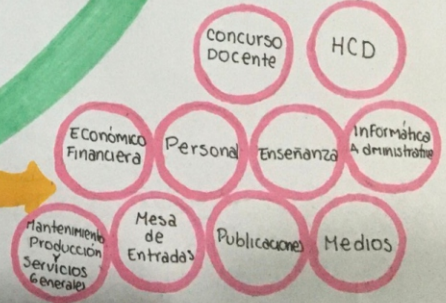 Concurso
Docente
HCD
Económico
Financiera
Personal
Enseñanza
Informática
Administrativa
Mantenimiento
Producción
y
Servicios
Generales
Mesa
de
Entradas
Publicaciones
Medios